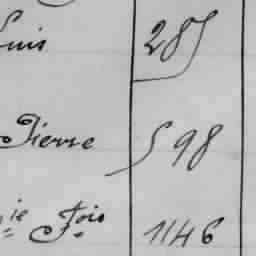 Louis 285
Pierre 598
ie Fois 1146